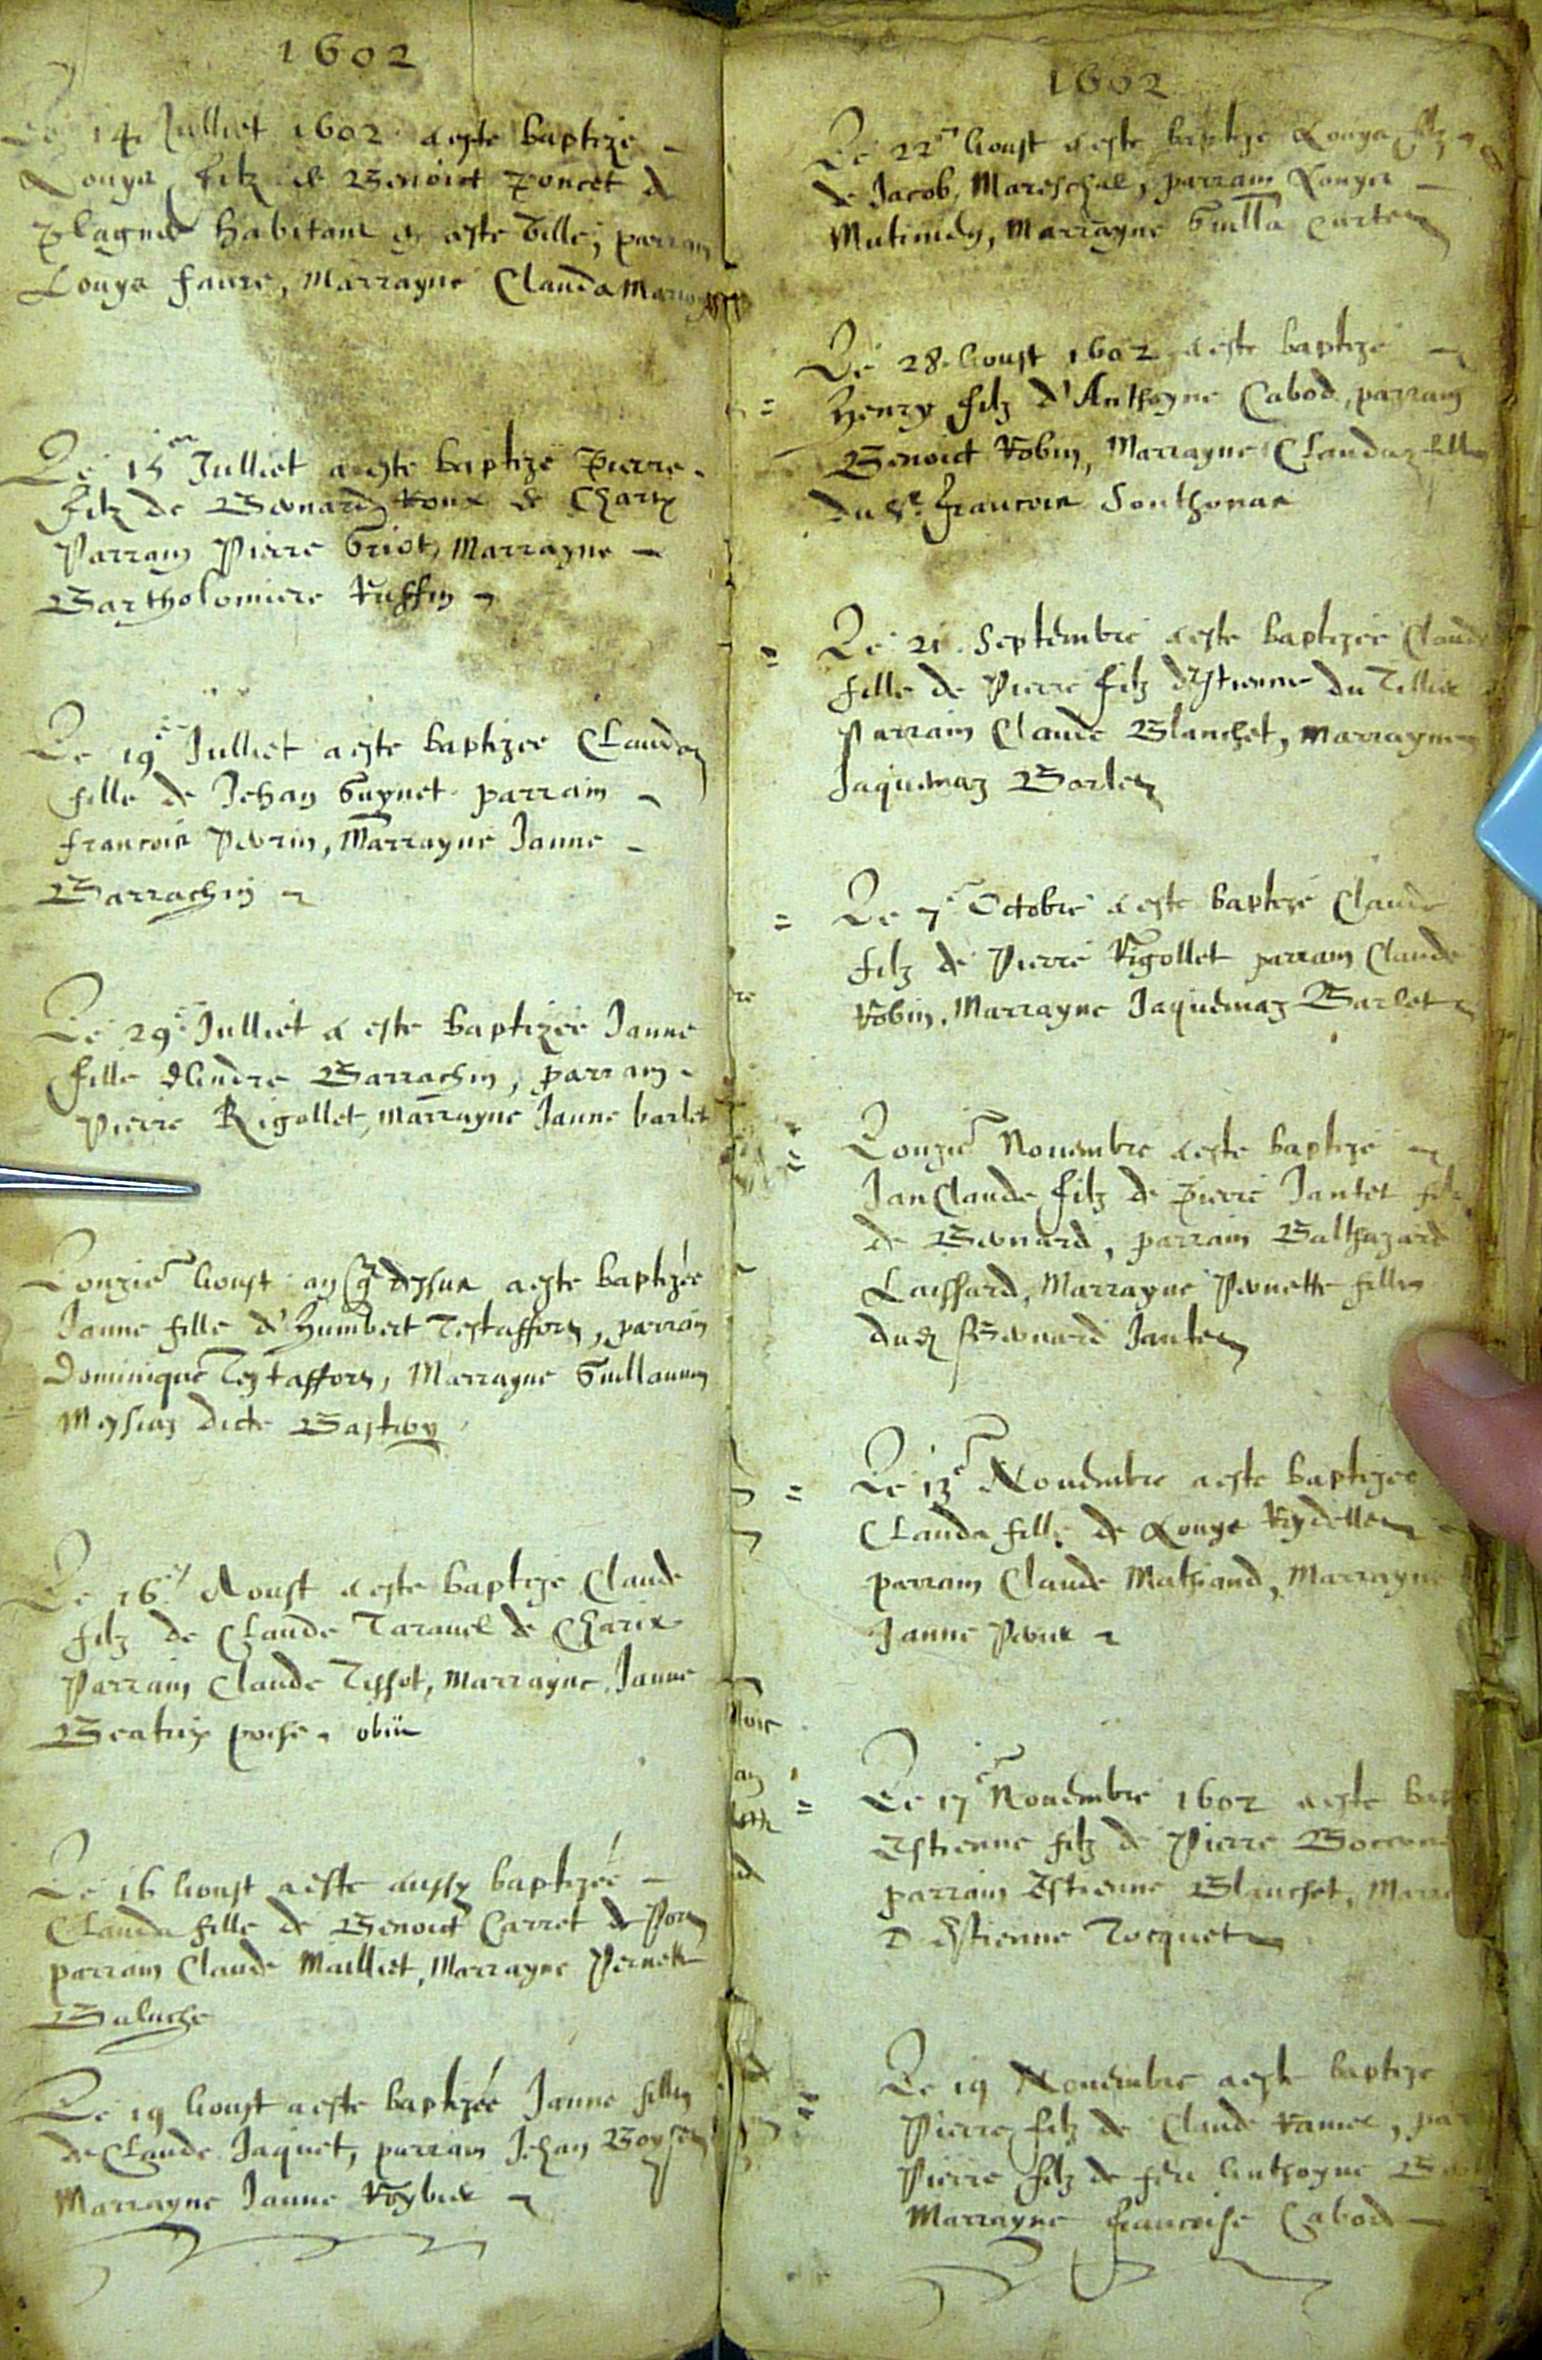 1602
Le 14 Julliet 1602 a este baptize
Louys filz de Benoict Poncet de
Plagne habitant en ceste ville, parrain
Louys Faure, Marrayne Clauda
Le 15en Julliet a este baptize Pierre
filz de Bernard Roux de Charix
Parrain Pierre Griot, Marrayne
Bartholomiere Ruffin
Le 19e Julliet a este baptizee Clauda
fille de Jehan Guynet parrain
francois Perrin, Marrayne Janne
Barrachin
Le 29e Julliet a este baptizee Janne
fille d'Andre Barrachin, parrain
Pierre Rigollet, Marrayne Janne barlet
L'onzie Aoust an dessus a este baptizée
Janne fille d'Humbert Testaffort, parrain
Dominique Testaffort, Marrayne Guillauma
dicte
Le 16e Aoust a este baptize Claude
filz de Claude Taravel de Charix
Parrain Claude Tissot, Marrayne Janne
Beatrix obiit
Le 16 Aoust a este aussy baptizée
Clauda fille de Benoict Carret de Port
parrain Claude Mailliet, Marrayne Pernette
Baluche
Le 19 Aoust a este baptizée Janne fille
de Claude Jaquet, parrain Jehan
Marrayne Janne
1602
Le 22e Aoust a este baptize Louys filz
de Jacob Mareschal, parrain Louys
Marrayne Guilla
Le 28 Aoust 1602 a este baptizé
Henry filz d'Anthoyne Cabod, parrain
Benoict Robin, Marrayne Claudaz fille
du Sr. Francois Sonthonas
Le 21 Septembre a este baptizée Clauda
fille de Pierre filz d'Estienne du Tilliet
Parrain Claude Blanchet, Marrayne
Jaquemaz Borlet
Le 7e Octobre a este baptizé Claude
filz de Pierre Rigollet parrain Claude
Robin, Marrayne Jaquemaz Barlet
L'onzie Novembre a este baptizé
Jan Claude filz de Pierre Jantet filz
de Bernard, parrain Balthazard
Laissard, Marrayne Pernette fille
dud Bernard Jantet
Le 13e Novembre a este baptizee
Clauda fille de Louys Rydellet
parrain Claude Mathiand, Marrayne
Janne
Le 17e Novembre 1602 a este
Estienne filz de Pierre
parrain Estienne Blanchet,
D. Estienne Tocquet
Le 19 Novembre a este baptize
Pierre filz de Claude Ramel,
Pierre filz de feu Anthoyne
Marrayne francoise Cabod